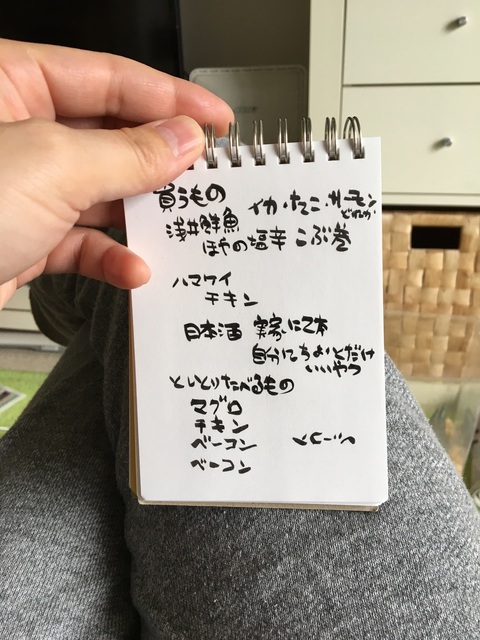 買うもの
イカ・たこ・サーモン
どれか
浅井鮮魚
ほやの塩辛 こぶ巻
ハマケイ
チキン
日本酒 実家に2本
自分にちょとだけ
いいやつ
としとりたべるもの
マグロ
チキン
ベーコン
ベーコン